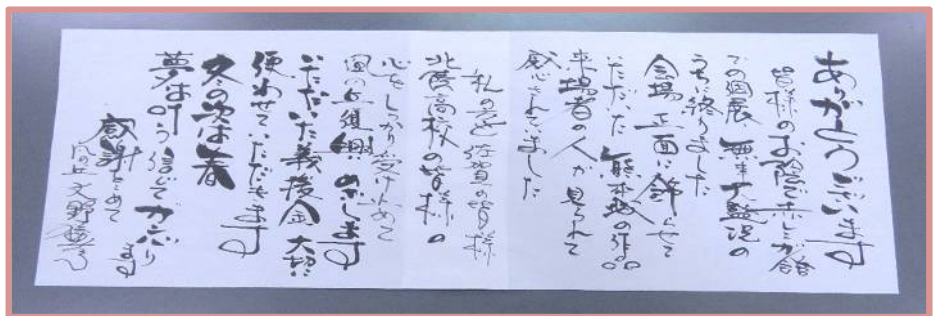 ありがとうございます
皆様のお陰で赤レンガ館
での個展、無事大盛況の
うちに終りました
会場正面に飾らせて
いただいた 熊本城の作品
来場者の人が見られて
感心されていました
私の 佐賀の皆様
北陵高校の皆様の
心をしっかり受け止めて
風の丘復興めざします
いただいた義援金大切に
使わせていただきます
冬の次は春
夢は叶う信じてガンバリ
ます
感謝をこめて
風の丘 大野勝彦